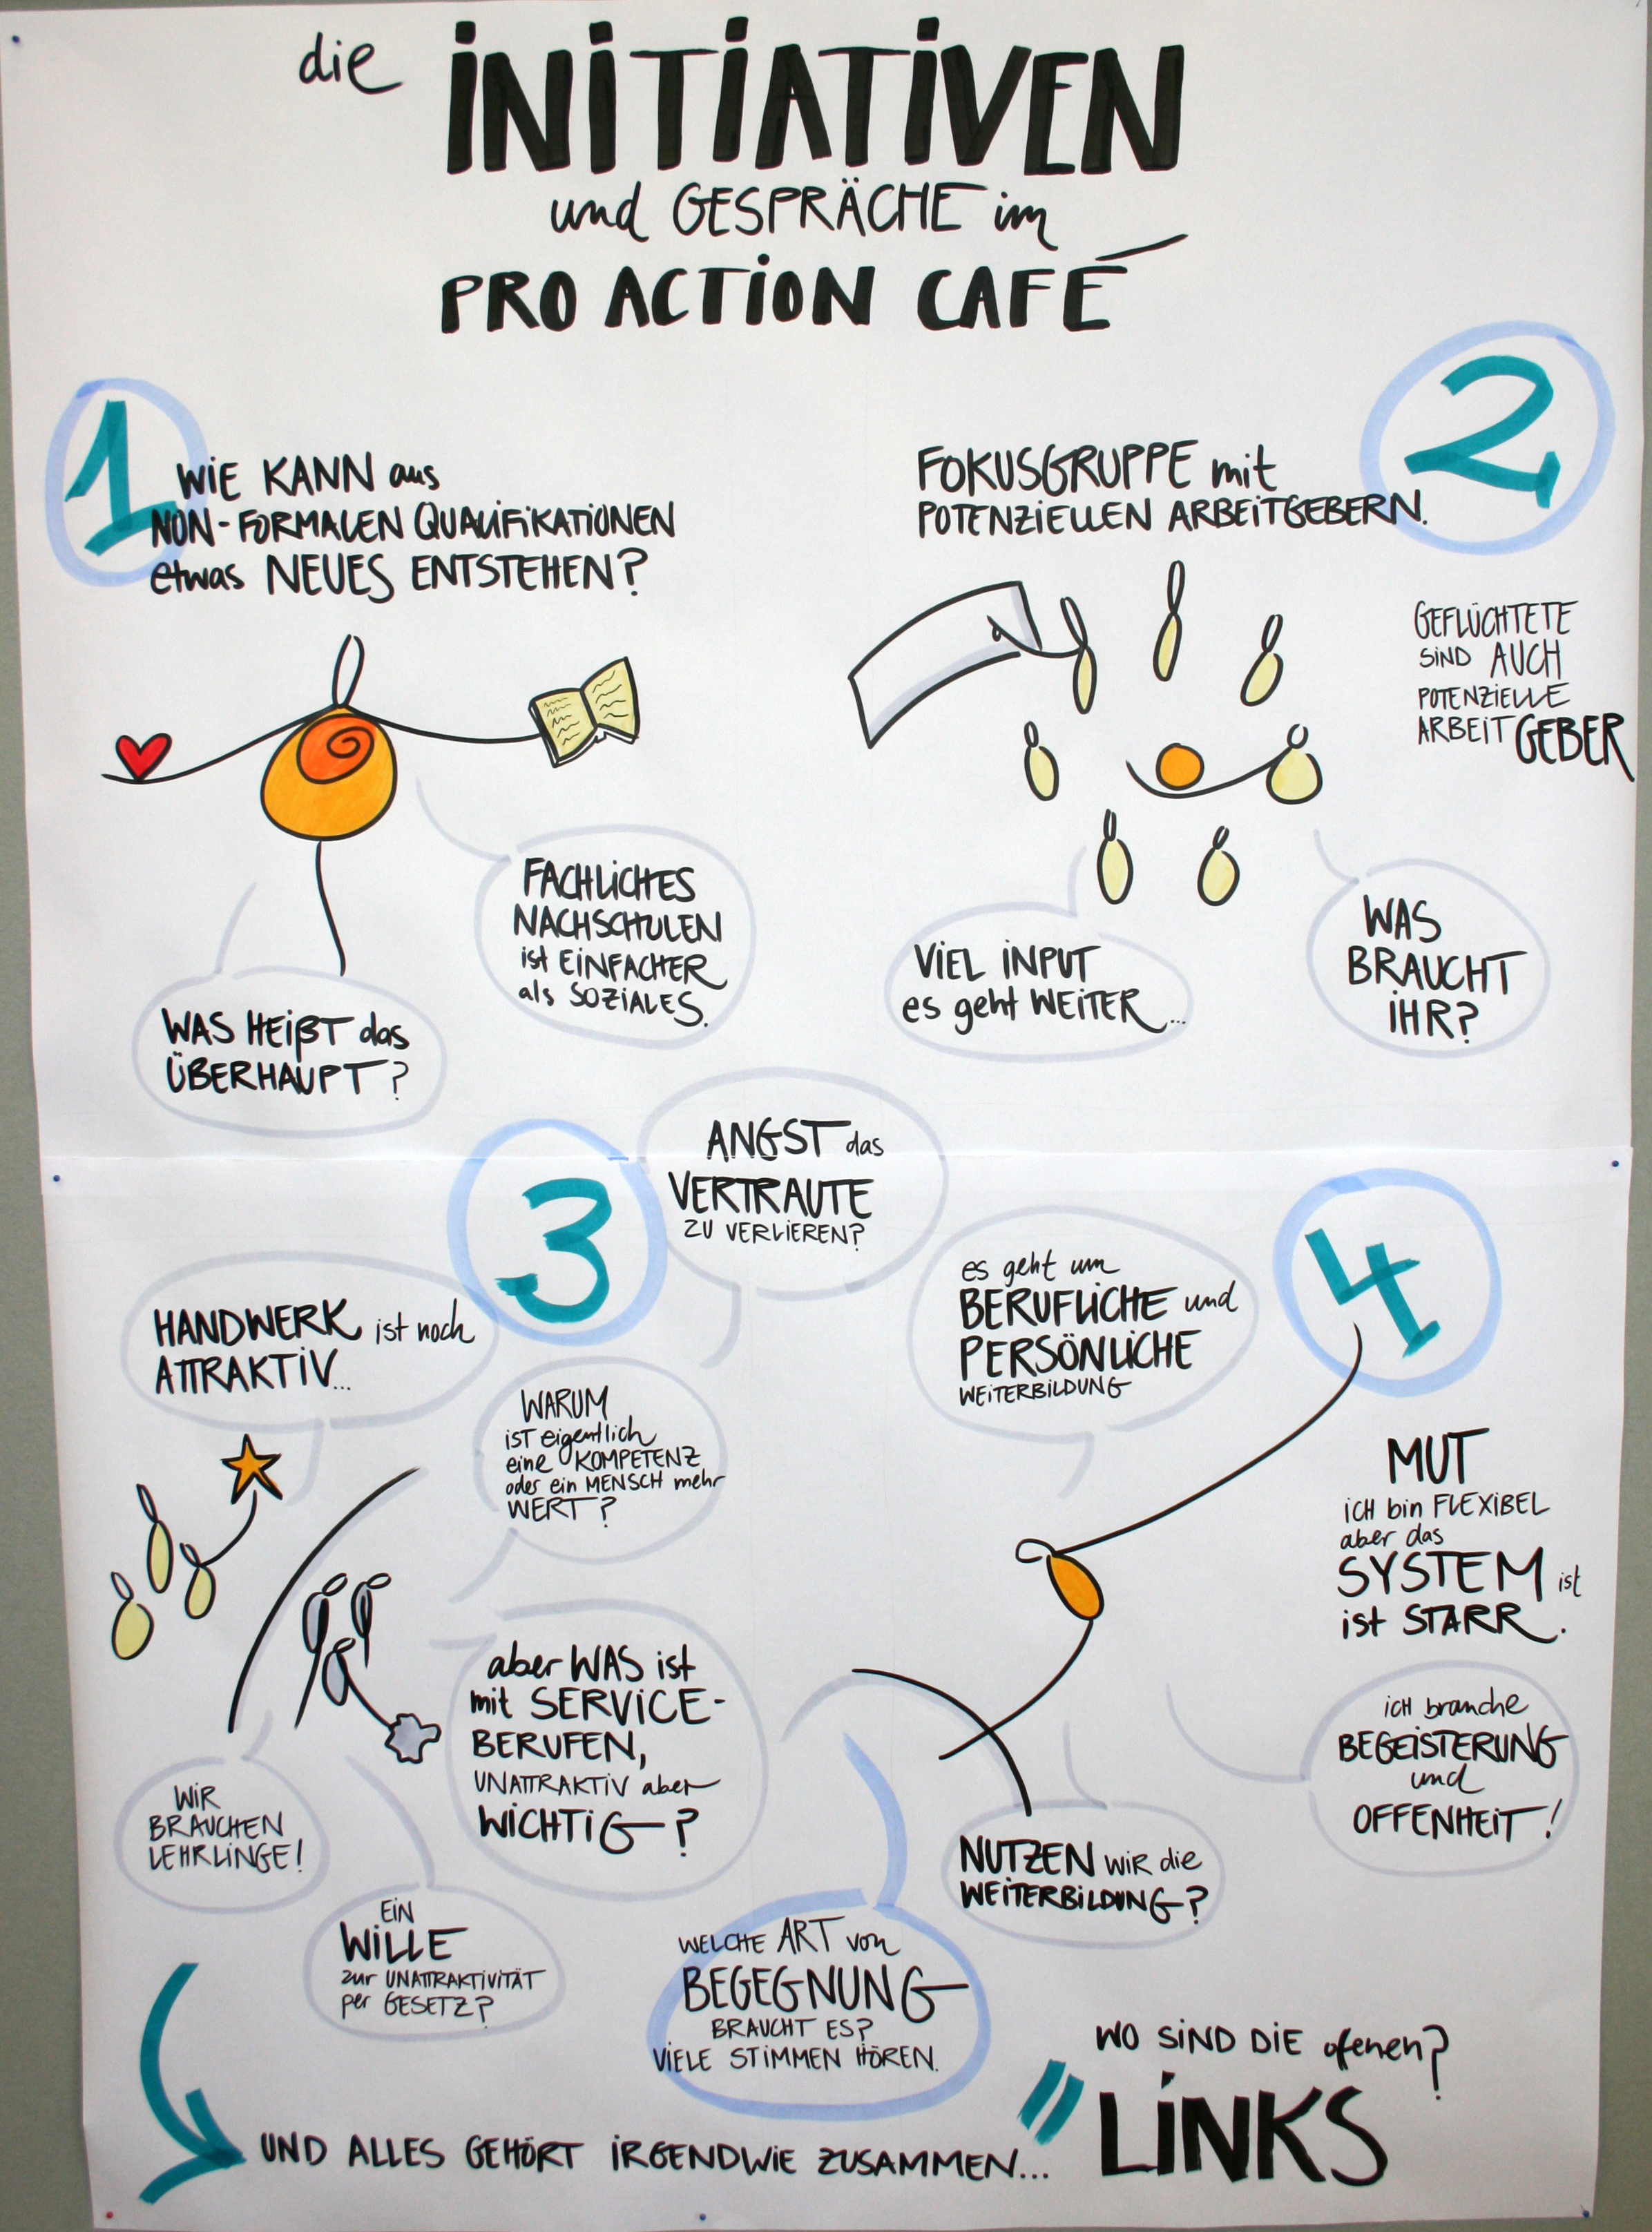 die INITIATIVEN
und GESPRÄCHE im
PRO ACTION CAFÉ
1
WIE KANN aus
NON-FORMALEN QUALIFIKATIONEN
etwas NEUES ENTSTEHEN?
FACHLICHES
NACHSCHULEN
ist EINFACHER
als SOZIALES.
WAS HEIßT das
ÜBERHAUPT?
2
FOKUSGRUPPE mit
POTENZIELLEN ARBEITGEBERN.
GEFLÜCHTETE
SIND AUCH
POTENZIELLE
ARBEITGEBER
VIEL INPUT
es geht WEITER...
WAS
BRAUCHT
IHR?
3
ANGST das
VERTRAUTE
ZU VERLIEREN?
HANDWERK ist noch
ATTRAKTIV...
WARUM
IST eigentlich
eine KOMPETENZ
oder ein MENSCH mehr
WERT?
aber WAS ist
mit SERVICE-
BERUFEN,
UNATTRAKTIV aber
WICHTIG?
WIR
BRAUCHEN
LEHRLINGE!
EIN
WILLE
zur UNATTRAKTIVITÄT
per GESETZ?
4
es geht um
BERUFLICHE und
PERSÖNLICHE
WEITERBILDUNG
MUT
ICH bin FLEXIBEL
aber das
SYSTEM ist
ist STARR.
ICH brauche
BEGEISTERUNG
und
OFFENHEIT!
NUTZEN WIR die
WEITERBILDUNG?
WELCHE ART von
BEGEGNUNG
BRAUCHT ES?
VIELE STIMMEN HÖREN.
WO SIND DIE ofenen?
LINKS
UND ALLES GEHÖRT IRGENDWIE ZUSAMMEN...